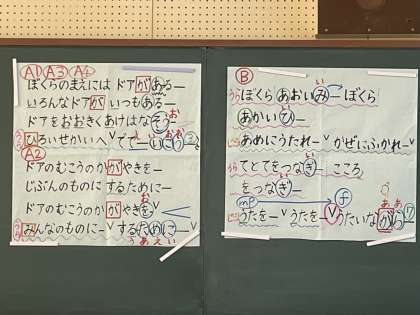 A1 A3 A4
ぼくらのまえには ドアがあるー
いろんなドアが いつもあるー
ドアをおおきくあけはなそうー
ひろいせかいへ∨でてーいこう
A2
ドアのむこうのかがやきをー
じぶんのものに するためにー
ドアのむこうのかがやきをー
みんなのものにー∨するためにー
B
ぼくら あおいみー ぼくら
あかいひー
あめにうたれー∨かぜにふかれー∨
てとてをつなぎー こころ
をつなぎー
mp f
うたをー∨うたをー∨うたいながら